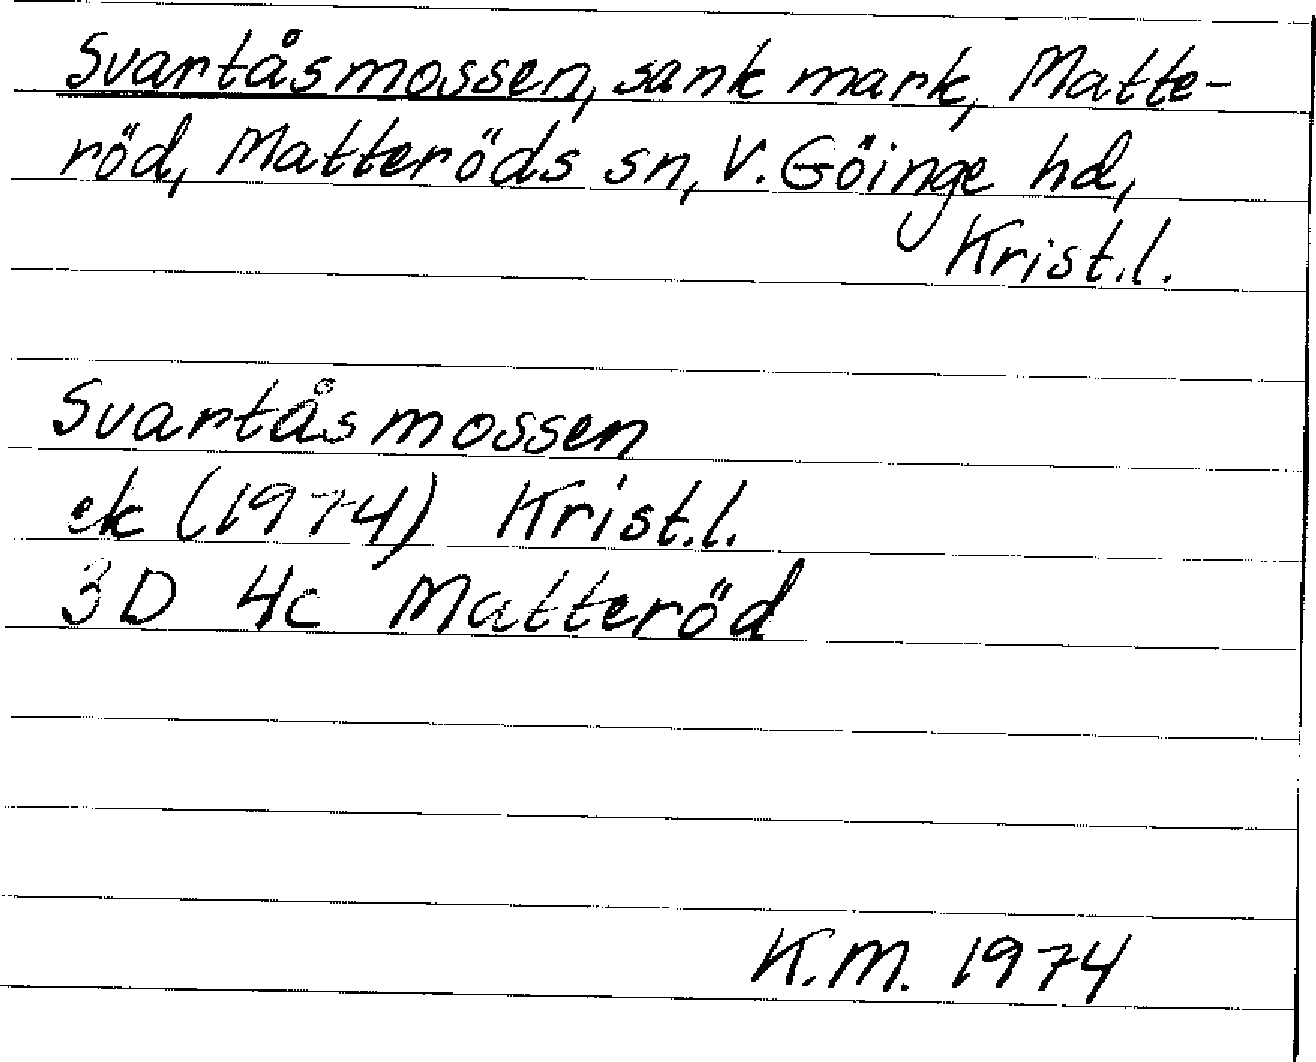 Svartåsmossen, sank mark, Matte-
röd, Matteröds sn, V. Göinge hd,
Krist.l.
Svartåsmossen
ek (1974) Krist.l.
3D 4c Matteröd
K.M. 1974